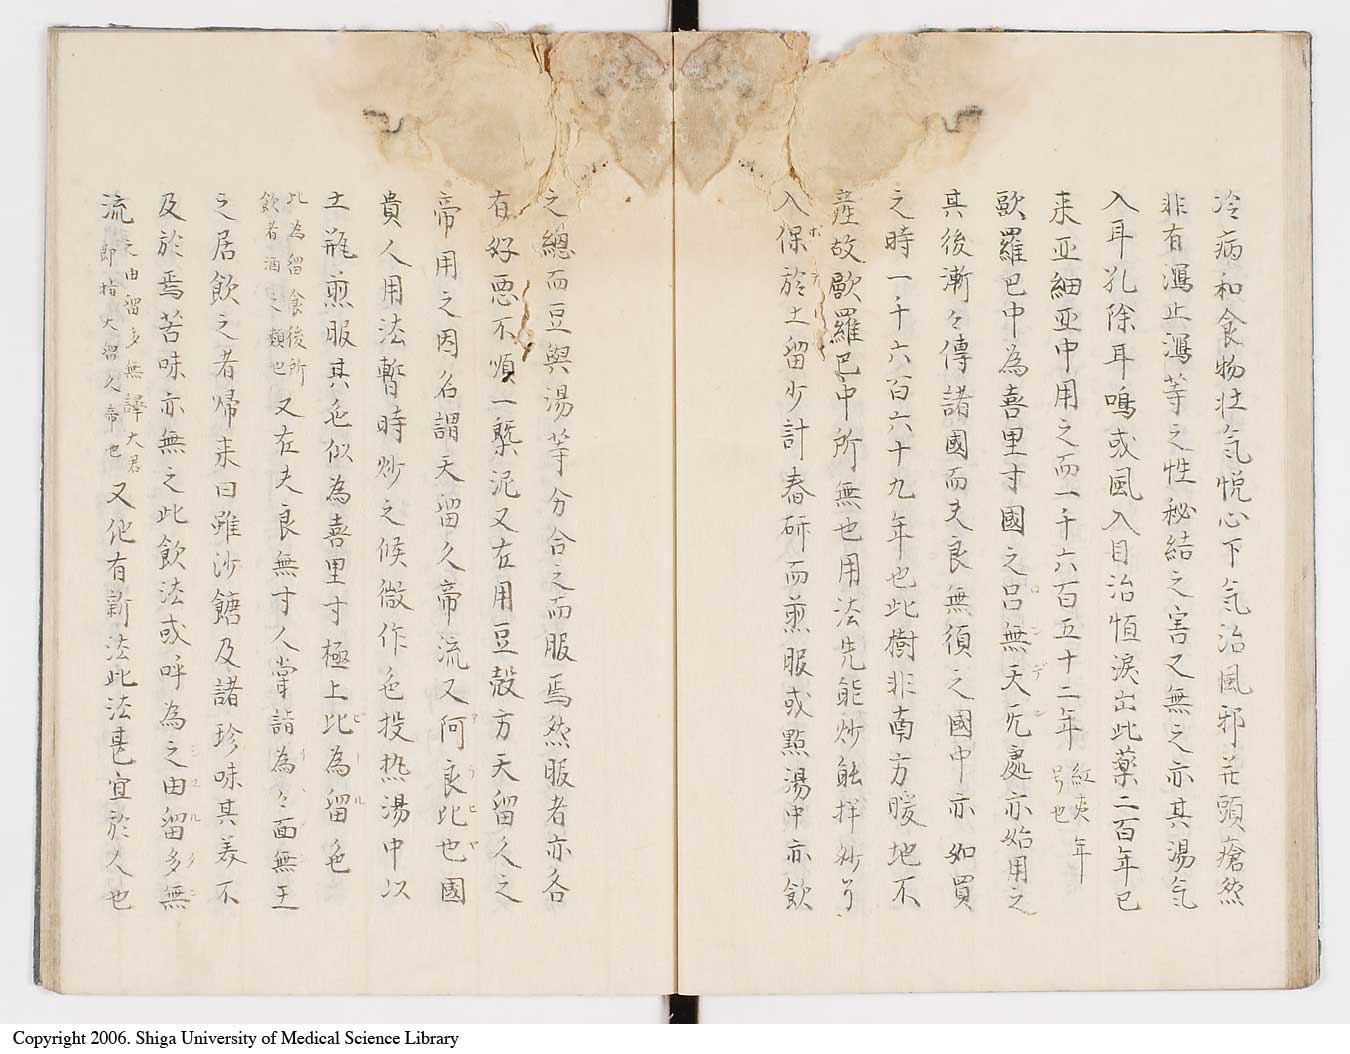 冷病和食物壮気悦心下気治風邪並頭瘡然
非有瀉止瀉等之性秘結之害又無之亦其湯気
入耳孔除耳鳴或風入目治恒涙出此薬二百年已
来亜細亜中用之而一千六百五十二年紅夷年号也
歐羅巴中為喜里寸國之呂無天処亦始用之
ロンデン
其後漸々傳諸國而夫良無須之國中亦如買
之時一千六百六十九年也此樹非南方暖地不
産故歐羅巴中所無也用法先能炒能拌
入保於土留少計舂研而煎服或點湯中亦飲
ボテール
之總而豆與湯等分合之而服焉然服者亦各
有好悪不順一槩泥又在用豆殻方天留久之
帝用之因名謂天留久帝流又何良比也國
アラビヤ
貴人用法暫時炒之候微作色投熱湯中以
土瓶煎服其色似為喜里寸極上比為留色
ビール
比為留食後所飲者酒之類也又在夫良無寸人嘗詣為々面無王
之居飲之者帰来曰雖沙糖及諸珍味其美不
及於焉苦味亦無之此飲法或呼為之由留多無
シユルタン
流之由留多無譯大君即指大留久帝也又他有新法此法甚宜於人也
Copyright 2006. Shiga University of Medical Science Library